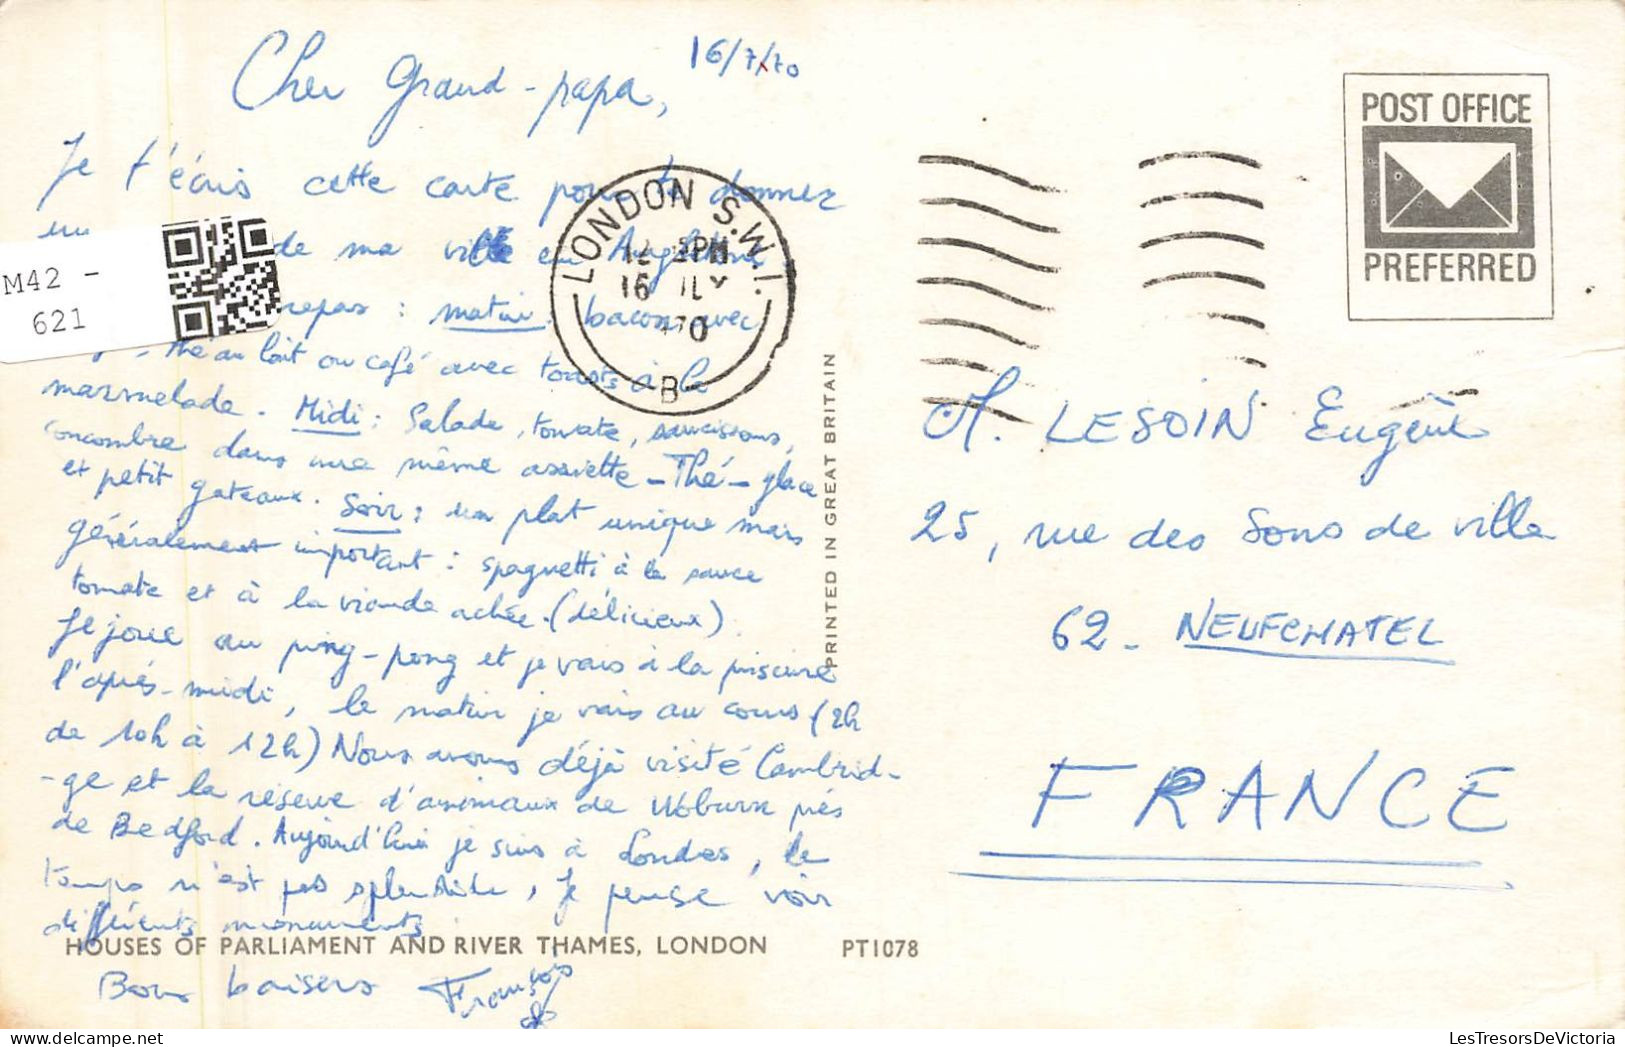 16/7/70
Cher Grand-papa,
Je t'écris cette carte pour te donner
de ma ville en Angleterre
repas : matin bacon avec
thé au lait ou café avec toasts à la
marmelade. Midi : Salade, tomate, saucissons,
concombre dans une même assiette - Thé - glace
et petit gateaux. Soir : un plat unique mais
généralement important : spaghetti à la sauce
tomate et à la viande achée. (délicieux)
Je joue au ping-pong et je vais à la piscine
l'après-midi, le matin je vais au cours (2h
de 10h à 12h) Nous avons déjà visité Cambrid-
-ge et la réserve d'animaux de Woburn près
de Bedford. Aujourd'hui je suis à Londres, le
temps n'est pas splendide, je pense voir
différents monuments.
Bons baisers François
HOUSES OF PARLIAMENT AND RIVER THAMES, LONDON PT1078
PRINTED IN GREAT BRITAIN
M42 -
621
LONDON S.W.1.
PM
16 JLY
1970
B
POST OFFICE
PREFERRED
M. LESOIN Eugène
25, rue des Sons de ville
62 - NEUFCHATEL
FRANCE
LesTresorsDeVictoria.com